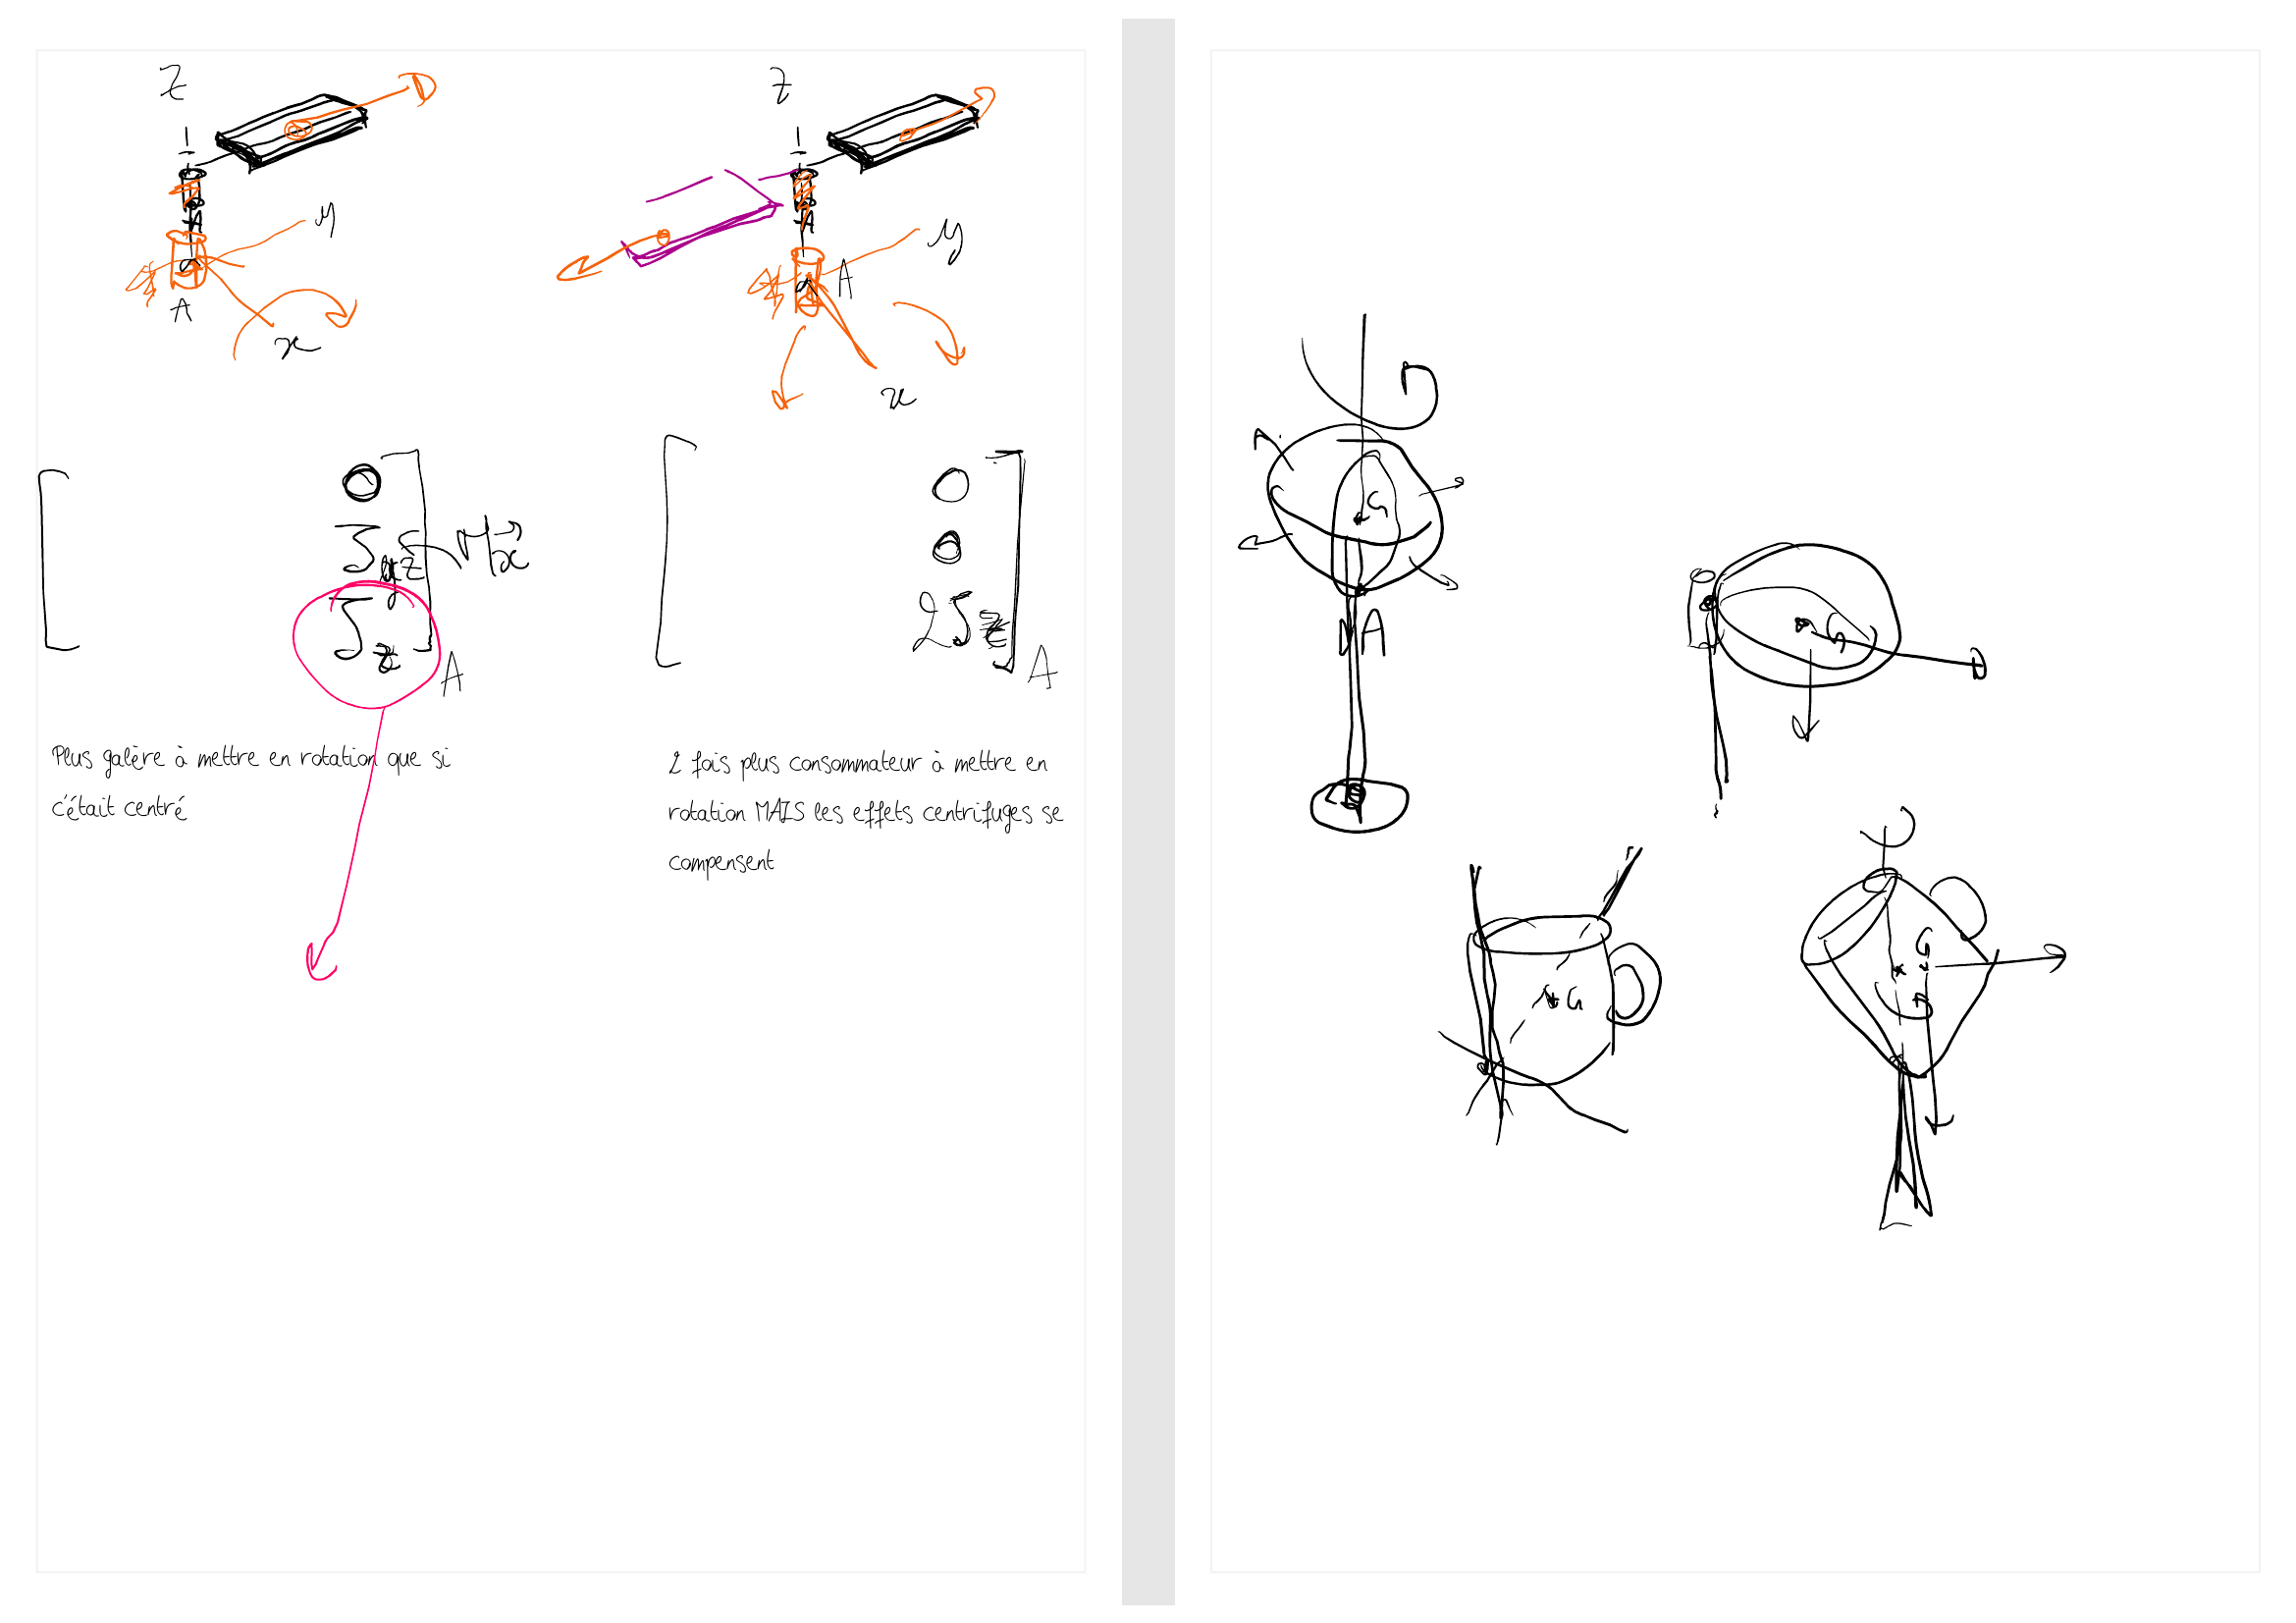 z
z
y
y
A
A
x
x
A
A
Plus galère à mettre en rotation que si
c'était centré
2 fois plus consommateur à mettre en
rotation MAIS les effets centrifuges se
compensent
G
A
G
G
G